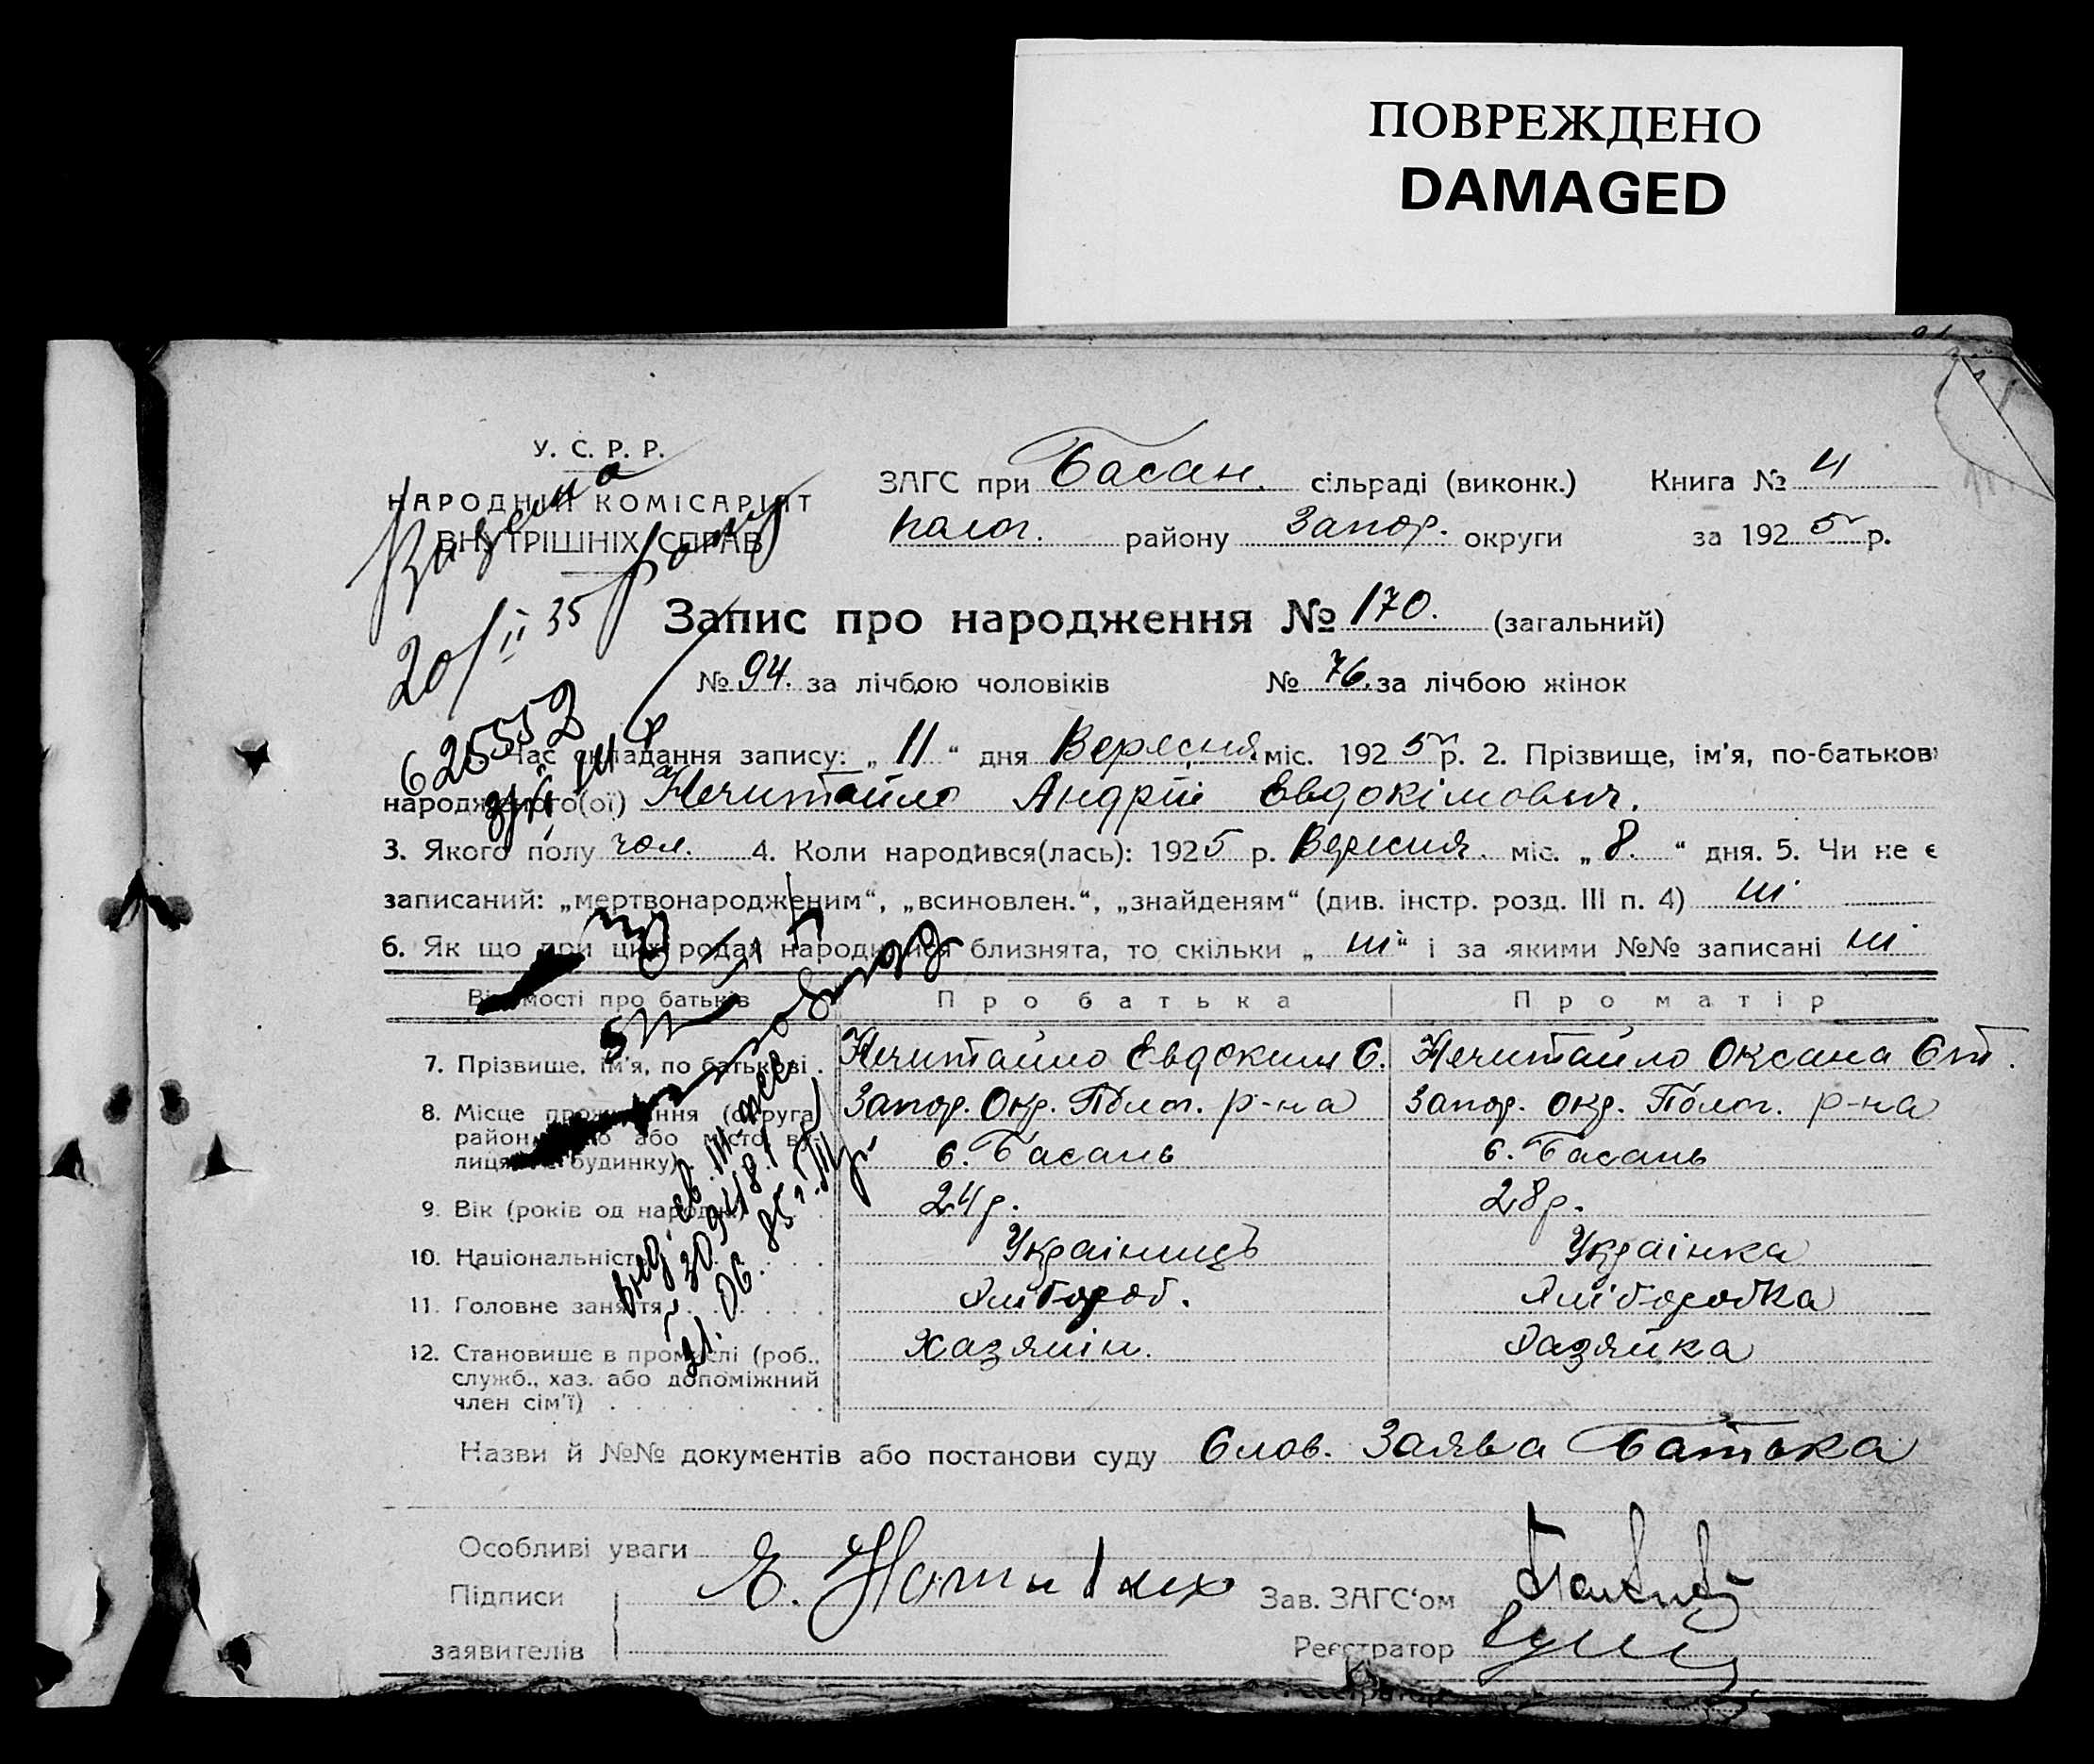 ПОВРЕЖДЕНО
DAMAGED
У. С. Р. Р.
НАРОДНИЙ КОМІСАРІЯТ
ВНУТРІШНІХ СПРАВ
ЗАГС при Басан. сільраді (виконк.) Книга № 4
полог. району Запор. округи за 1925 р.
20/II 35
Запис про народження № 170. (загальний)
№ 94. за лічбою чоловіків № 76. за лічбою жінок
625552
Час складання запису: „ 11 “ дня Вересня міс. 1925 р. 2. Прізвище, ім'я, по-батькові
народженого(ої) Нечитайло Андрій Евдокімович.
3. Якого полу чол. 4. Коли народився(лась): 1925 р. Вересня. міс. „ 8. “ дня. 5. Чи не є
записаний: „мертвонародженим“, „всиновлен.“, „знайденям“ (див. інстр. розд. III п. 4) ні
6. Як що при цих родах народилися близнята, то скільки „ ні “ і за якими №№ записані ні
Відомості про батьків Про батька Про матір
7. Прізвище, ім'я, по батькові . Нечитайло Евдоким С. Нечитайло Оксана Ст.
8. Місце проживання (округа Запор. Окр. Полог. р-на Запор. окр. Полог. р-на
район, село або місто, ву-
лиця, № будинку) с. Басань с. Басань
9. Вік (років од народж.) 24 р. 28 р.
10. Національність Україниць Українка
11. Головне заняття Хлібороб. Хліборобка
12. Становище в промислі (роб., Хазяїн. Хазяйка
служб., хаз. або допоміжний
член сім'ї)
Назви й №№ документів або постанови суду Слов. Заява Батька
Особливі уваги
Підписи Зав. ЗАГС'ом
заявителів Реєстратор